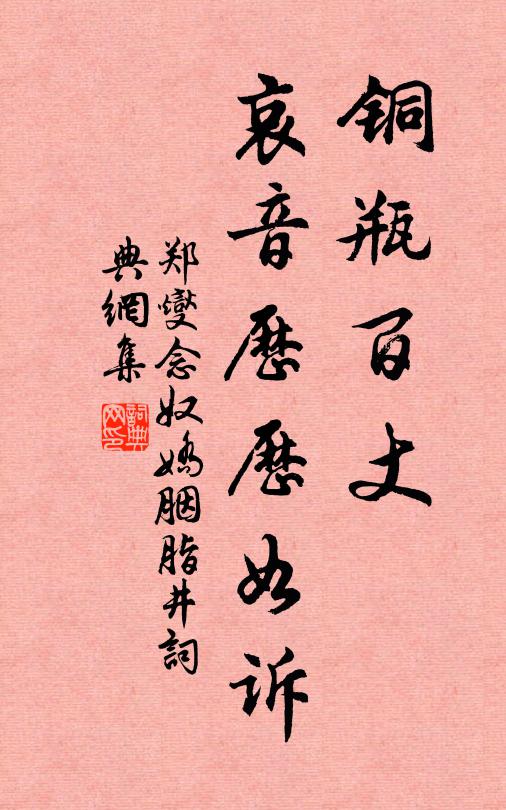 铜瓶百丈
哀音历历如诉
郑燮念奴娇胭脂井词
典网集
词典
网印